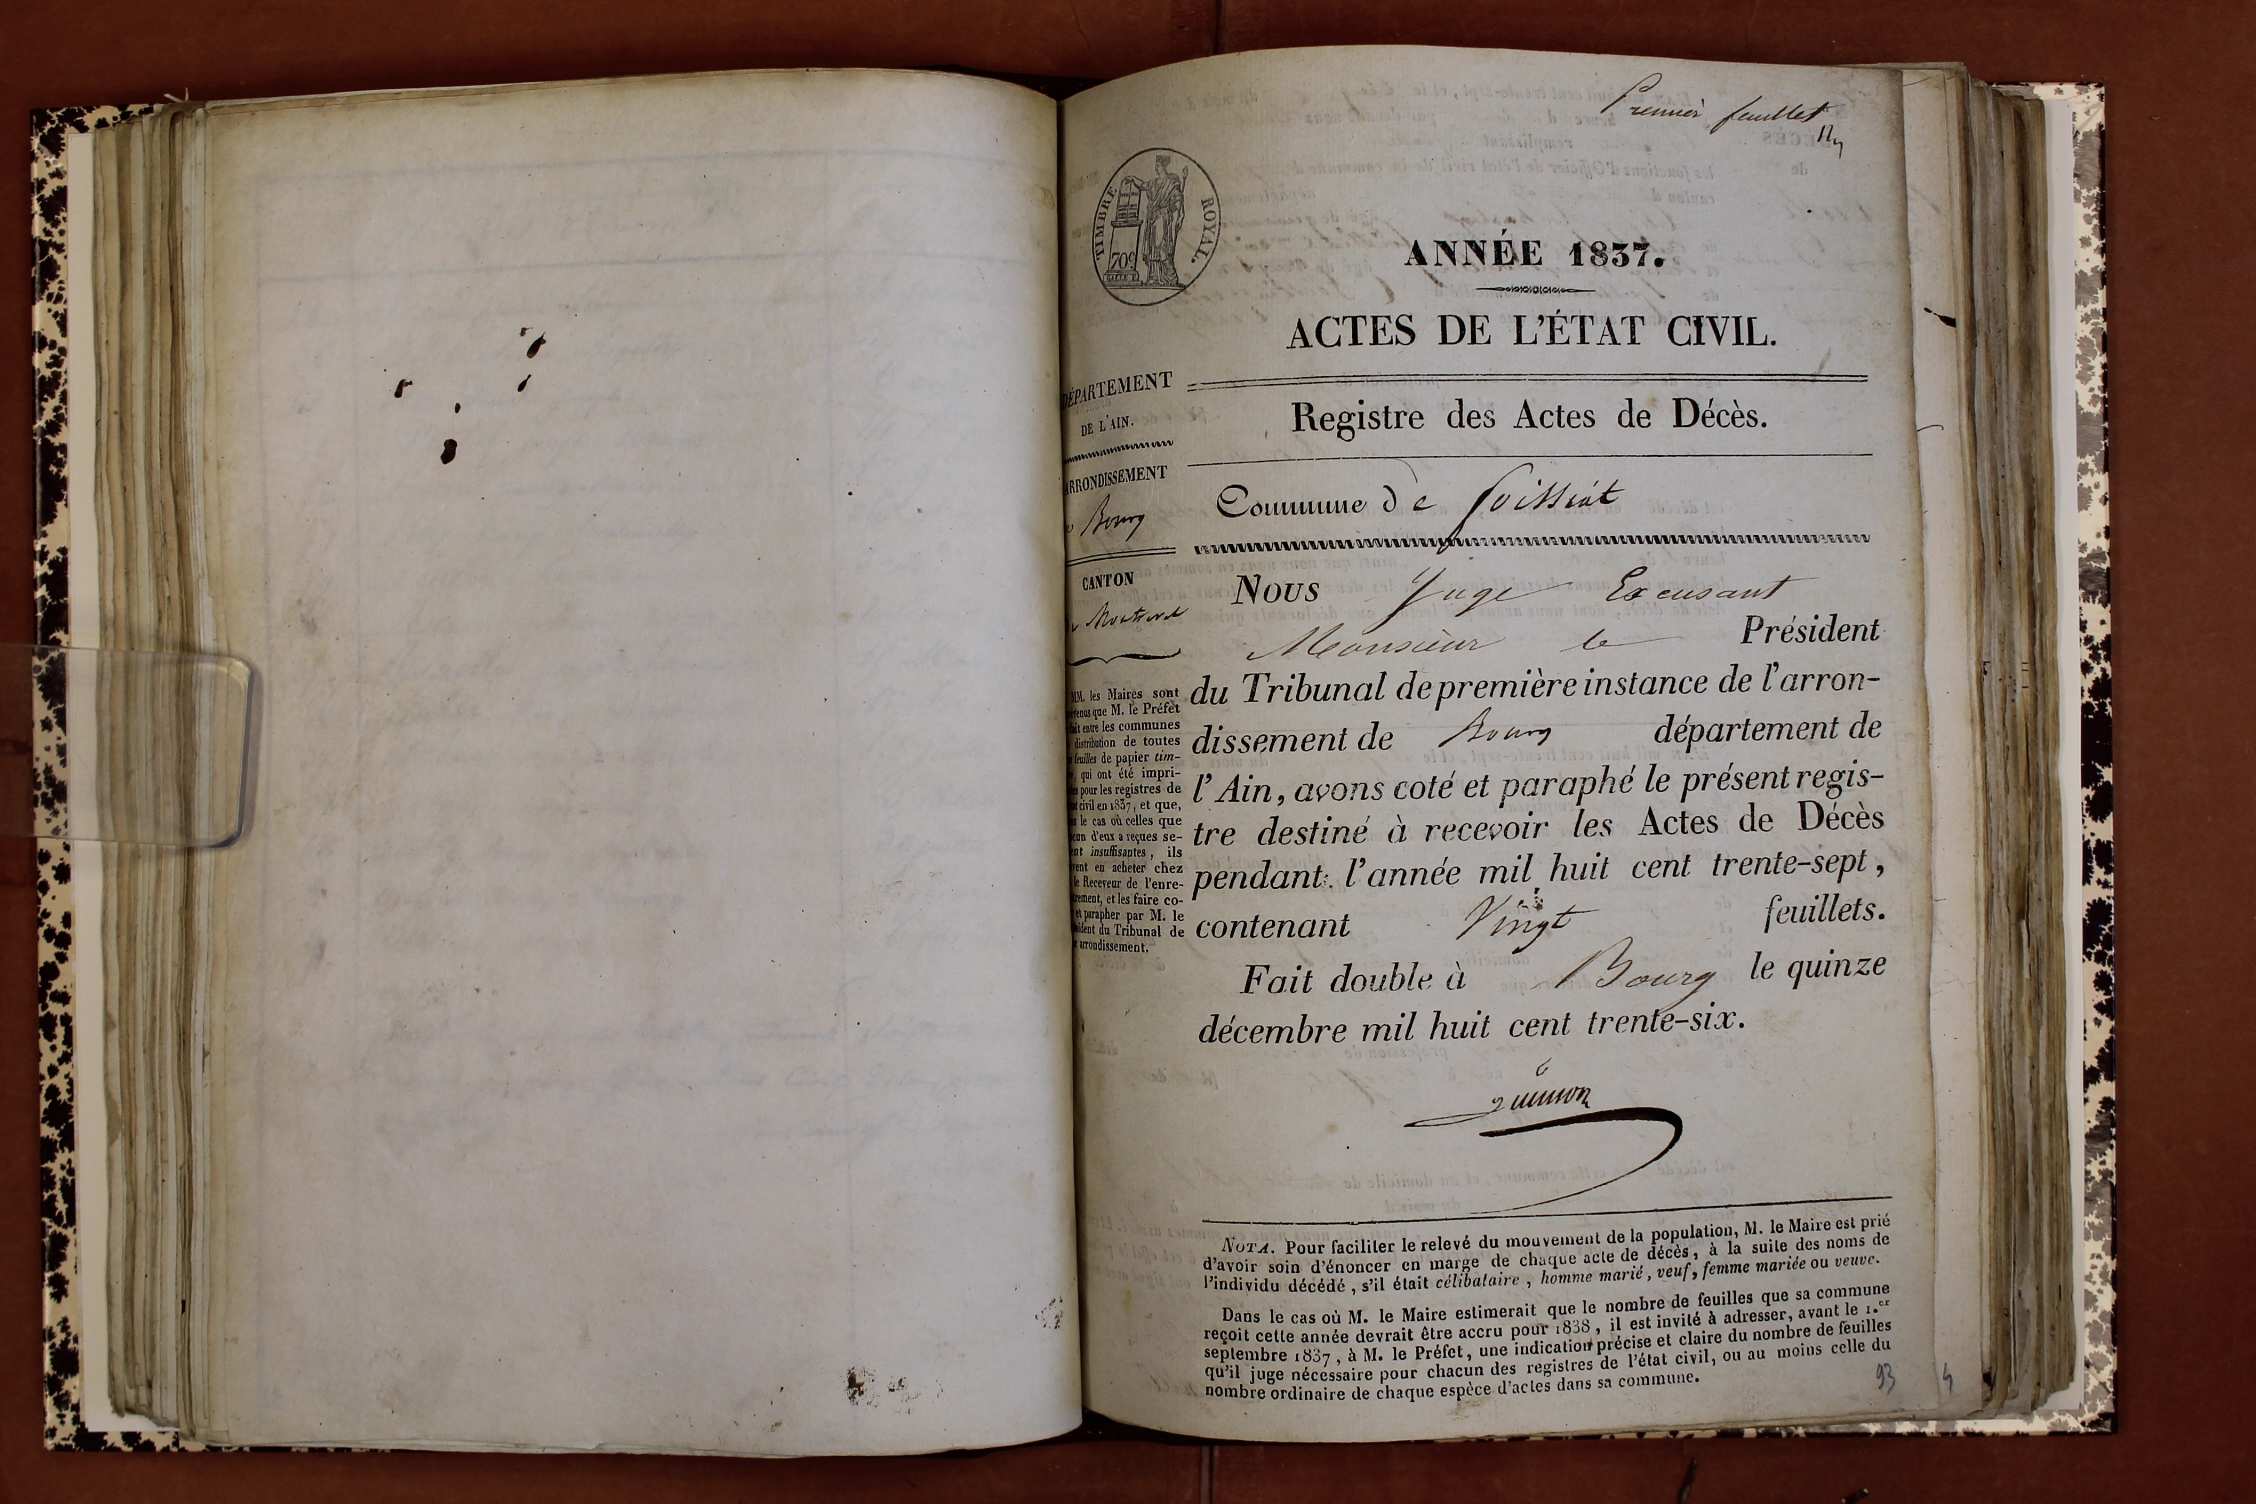 Premier feuillet
TIMBRE ROYAL.
70c
ANNÉE 1837.
ACTES DE L'ÉTAT CIVIL.
DÉPARTEMENT
DE L'AIN.
ARRONDISSEMENT
Bourg
CANTON
Montrevel
MM. les Maires sont
que M. le Préfet
entre les communes
distribution de toutes
feuilles de papier tim-
qui ont été impri-
pour les registres de
civil en 1837, et que,
le cas où celles que
d'eux a reçues se-
insuffisantes, ils
en acheter chez
le Receveur de l'enre-
et les faire co-
et parapher par M. le
du Tribunal de
arrondissement.
Registre des Actes de Décès.
Commune de Foissiat
Nous Juge Excusant
Monsieur le Président
du Tribunal de première instance de l'arron-
dissement de Bourg département de
l'Ain, avons coté et paraphé le présent regis-
tre destiné à recevoir les Actes de Décès
pendant l'année mil huit cent trente-sept,
contenant Vingt feuillets.
Fait double à Bourg le quinze
décembre mil huit cent trente-six.
NOTA. Pour faciliter le relevé du mouvement de la population, M. le Maire est prié
d'avoir soin d'énoncer en marge de chaque acte de décès, à la suite des noms de
l'individu décédé, s'il était célibataire, homme marié, veuf, femme mariée ou veuve.
Dans le cas où M. le Maire estimerait que le nombre de feuilles que sa commune
reçoit cette année devrait être accru pour 1838, il est invité à adresser, avant le 1.er
septembre 1837, à M. le Préfet, une indication précise et claire du nombre de feuilles
qu'il juge nécessaire pour chacun des registres de l'état civil, ou au moins celle du
nombre ordinaire de chaque espèce d'actes dans sa commune.
93